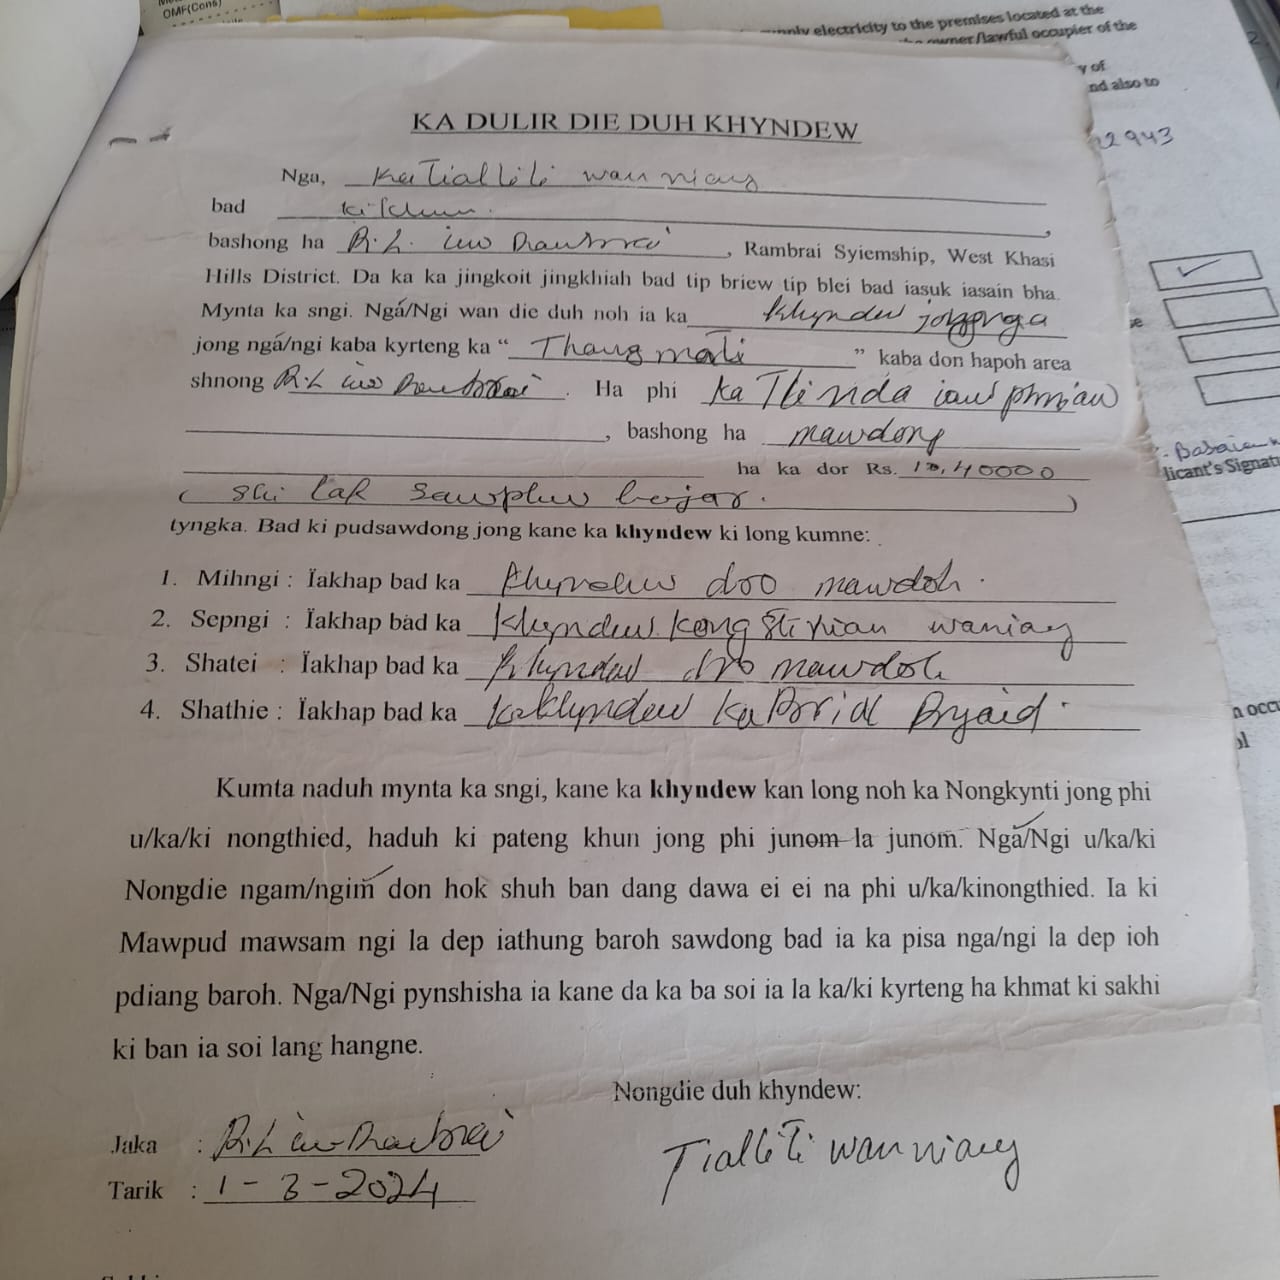 OMF(Cons)
supply electricity to the premises located at the
owner/lawful occupier of the
y of
nd also to
22943
KA DULIR DIE DUH KHYNDEW
Nga, Ka Tiallili wanniang
bad ki khun.
bashong ha R.L. iew Rambrai, Rambrai Syiemship, West Khasi
Hills District. Da ka ka jingkoit jingkhiah bad tip briew tip blei bad iasuk iasain bha.
Mynta ka sngi. Ngá/Ngi wan die duh noh ia ka khyndew jong nga
jong ngá/ngi kaba kyrteng ka “ Thangmali ” kaba don hapoh area
shnong R.L iew Rambrai. Ha phi ka
, bashong ha mawdong
ha ka dor Rs. 40000
( lak sawphew hajar. )
tyngka. Bad ki pudsawdong jong kane ka khyndew ki long kumne:
1. Mihngi : Ïakhap bad ka khyndew doo mawdoh.
2. Sepngi : Ïakhap bad ka khyndew kong waniang
3. Shatei : Ïakhap bad ka khyndew mawdoh
4. Shathie : Ïakhap bad ka ka khyndew ka
Kumta naduh mynta ka sngi, kane ka khyndew kan long noh ka Nongkynti jong phi
u/ka/ki nongthied, haduh ki pateng khun jong phi junom la junom. Nga/Ngi u/ka/ki
Nongdie ngam/ngim don hok shuh ban dang dawa ei ei na phi u/ka/kinongthied. Ia ki
Mawpud mawsam ngi la dep iathung baroh sawdong bad ia ka pisa nga/ngi la dep ioh
pdiang baroh. Nga/Ngi pynshisha ia kane da ka ba soi ia la ka/ki kyrteng ha khmat ki sakhi
ki ban ia soi lang hangne.
Nongdie duh khyndew:
Jaka : R.L iew Rambrai
Tiallili wanniang
Tarik : 1-3-2024
licant's Signat